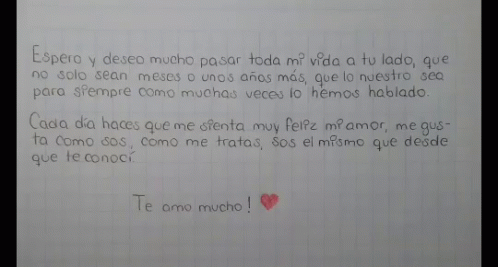 Espero y deseo mucho pasar toda mi vida a tu lado, que
no solo sean meses o unos años más, que lo nuestro sea
para siempre como muchas veces lo hemos hablado.
Cada día haces que me sienta muy feliz mi amor, me gus-
ta como sos, como me tratas, sos el mismo que desde
que te conocí.
Te amo mucho!